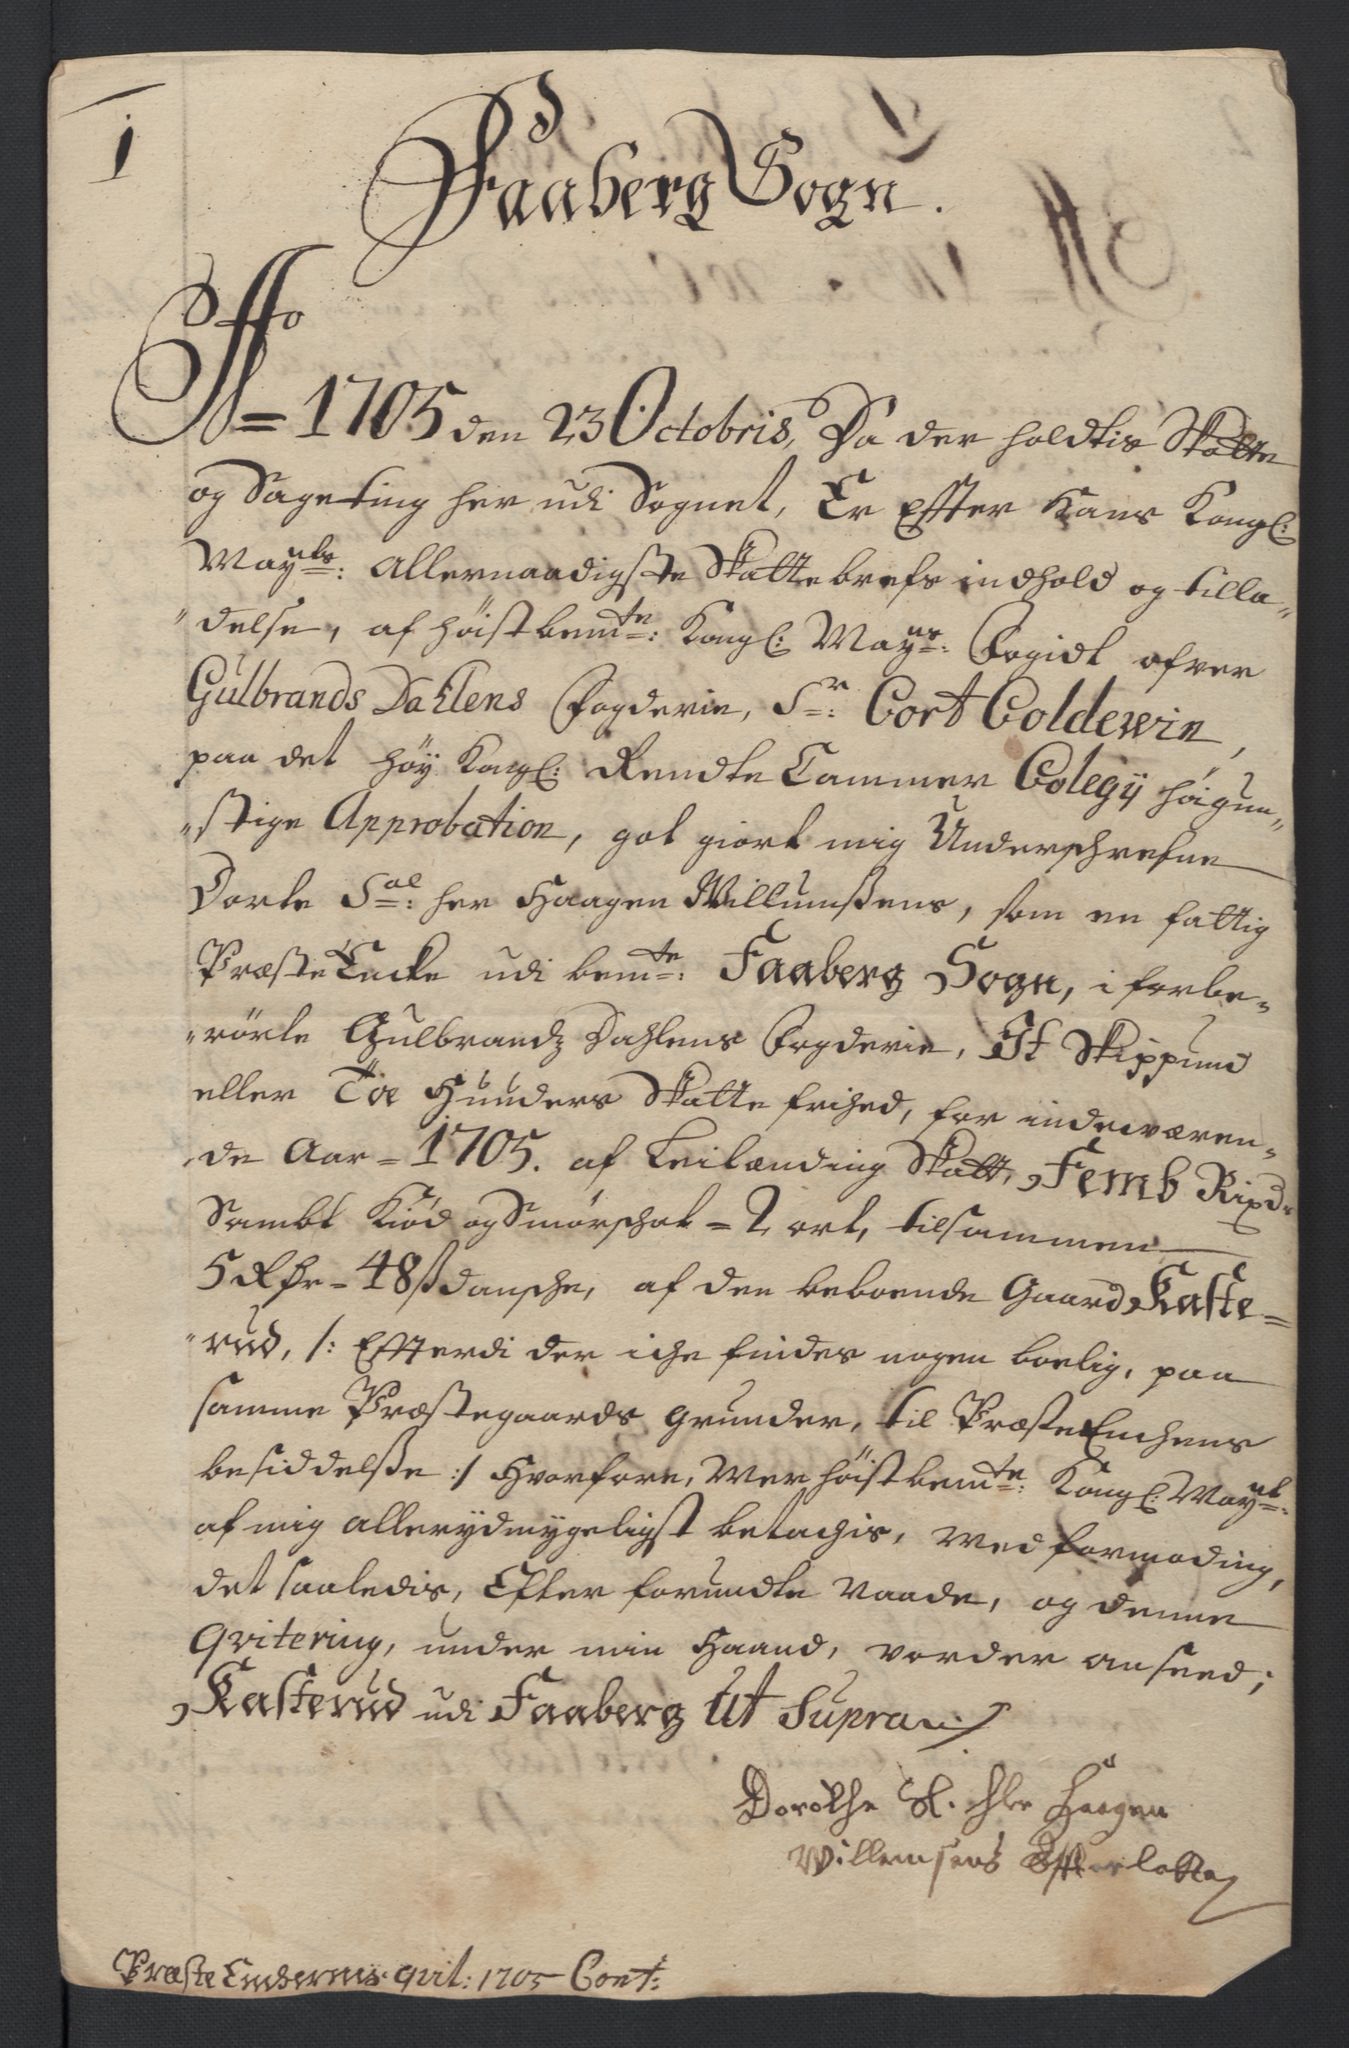 1
Faaberg Sogn.
Ao
= 1705 den 23 Octobris, Da der holdtis Skatte
og Sageting her udi Sognet, Er Effter Hans Kongl:
Mayts: allernaadigste Skattebrefs indhold og tilla„
„delse, af høistbemte: Kongl: Mays: Fogidt ofver
Gulbrands Dahlens Fogderie, Sr: Cort Coldewin,
paa det höy Kongl: Rendte Cammer Colegij höigun„
„stige Approbation, got giort mig Underschrefne
Dorte Sal: her Haagen Willumßens, som en fattig
Præste Encke udi bemte: Faaberg Sogn, i forbe„
„rörte Gulbrandz Dahlens Fogderie, It Skippund
eller Töe Hunders Skatte frihed, for indeværen„
„de Aar = 1705. af Leilænding Skatt, Femb Rixd:
Sambt Kiöd og Smörschat = 2 ort, tilsammen
5 Rdr = 48 ß dansche, af den beboende Gaard Kaste=
„rud, /: Effterdi der iche findes nogen boelig, paa
samme Præstegaards grunder, til Præste Enchens
besiddelße :/ Hvorfore, Wer höistbemte: Kongl: Mayt:
af mig allerydmygeligst betachis, Med formoding,
det saaledis, Efter forundte Naade, og denne
Qvitering, under min Haand, vorder anseed;
Kasterud udi Faaberg Ut Supra
Dorothe Sl. Her Haagen
Willemsens Effterlatte
Præste Enchernis qvit: 1705 Cont: